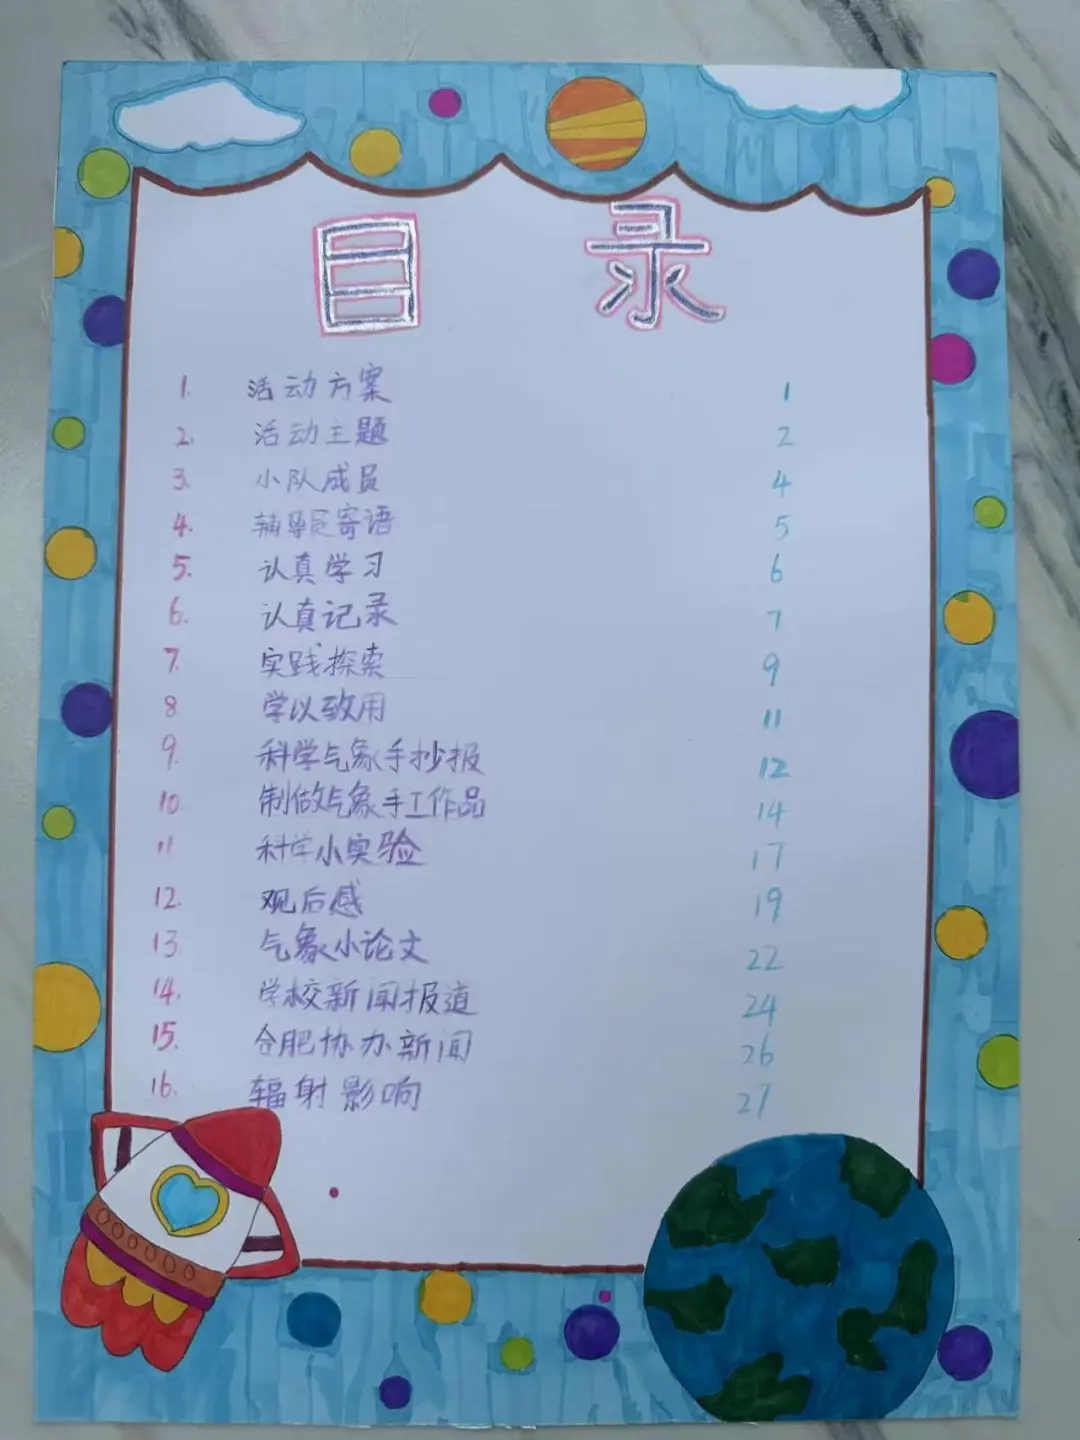 目 录
1. 活动方案 1
2. 活动主题 2
3. 小队成员 4
4. 辅导员寄语 5
5. 认真学习 6
6. 认真记录 7
7. 实践探索 9
8 学以致用 11
9. 科学气象手抄报 12
10. 制做气象手工作品 14
11 科学小实验 17
12. 观后感 19
13 气象小论文 22
14. 学校新闻报道 24
15. 合肥协办新闻 26
16. 辐射影响 27